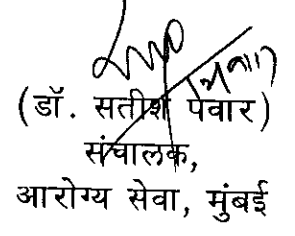 (डॉ. सतीश पवार)
संचालक,
आरोग्य सेवा, मुंबई